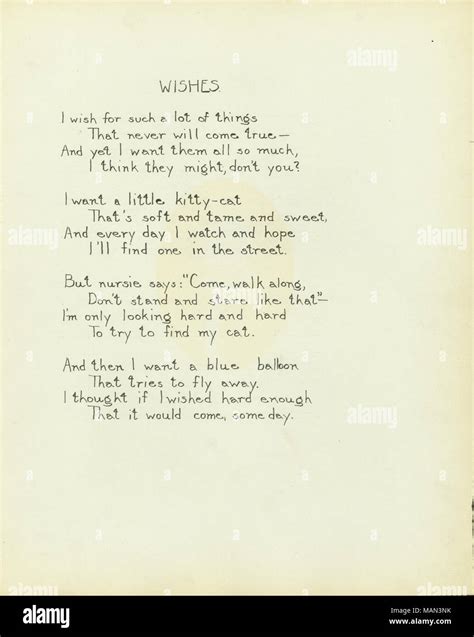 WISHES.
I wish for such a lot of things
That never will come true—
And yet I want them all so much,
I think they might, don't you?
I want a little kitty-cat
That's soft and tame and sweet,
And every day I watch and hope
I'll find one in the street.
But nursie says: "Come, walk along,
Don't stand and stare like that"—
I'm only looking hard and hard
To try to find my cat.
And then I want a blue balloon
That tries to fly away.
I thought if I wished hard enough
That it would come, some day.
alamy
Image ID: MAN3NK
www.alamy.com